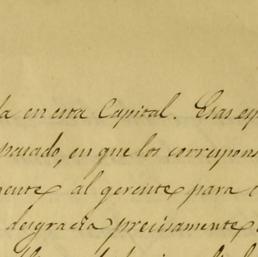 en esta Capital. Esas
pasado, en que los correspons
al gerente para
desgracia precisamente